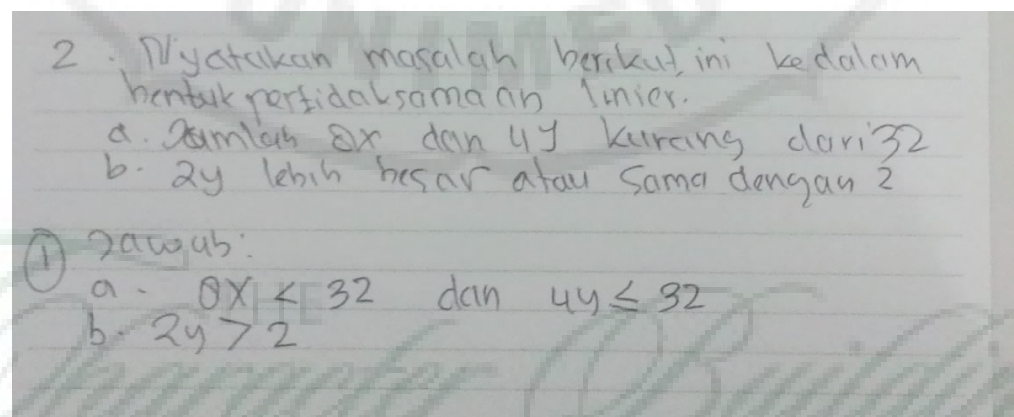 UNIMED
2. Nyatakan masalah berikut ini kedalam
bentuk pertidaksamaan linier.
a. Jumlah 8x dan 4y kurang dari 32
b. 2y lebih besar atau sama dengan 2
① Jawab:
a. 8x < 32 dan 4y ≤ 32
b. 2y > 2
THE
Character Buildin